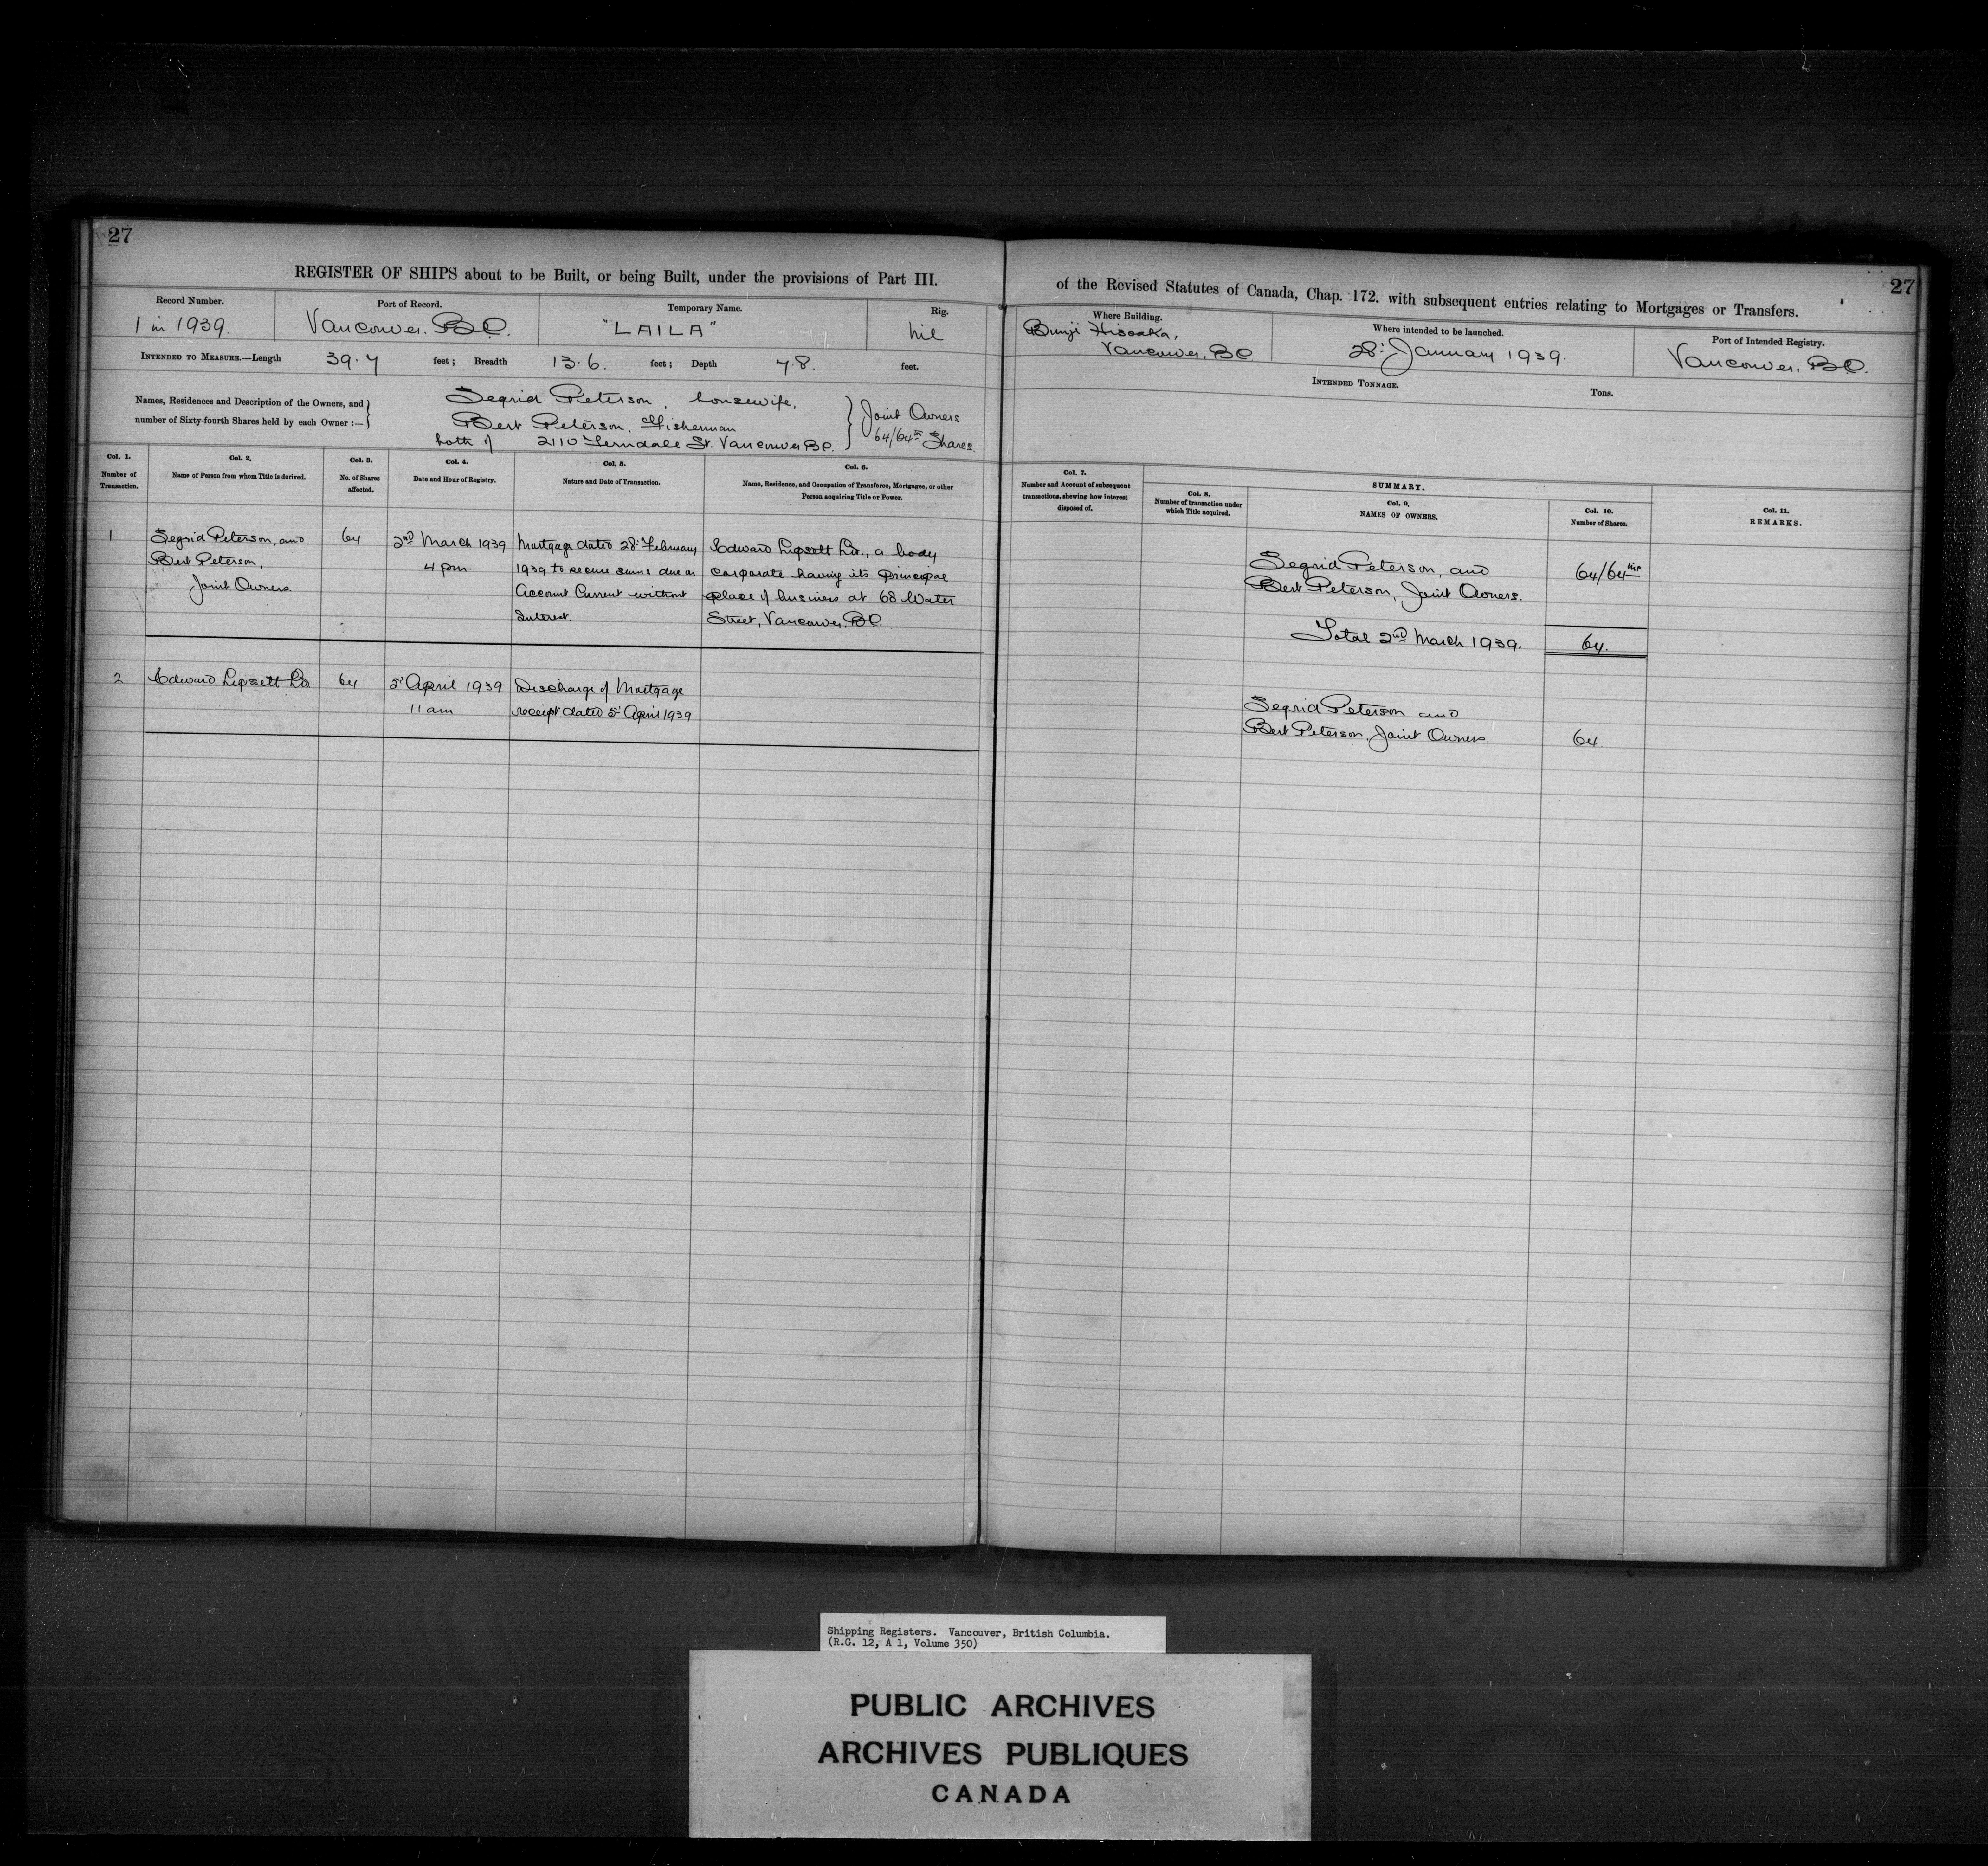 27
REGISTER OF SHIPS about to be Built, or being Built, under the provisions of Part III.
Record Number.
1 in 1939.
Port of Record.
Vancouver. B.C.
Temporary Name.
"LAILA"
Rig.
nil
INTENDED TO MEASURE.—Length 39.7 feet; Breadth 13.6. feet; Depth 7.8. feet.
Names, Residences and Description of the Owners, and
number of Sixty-fourth Shares held by each Owner :—
Segrid Peterson, housewife,
Bert Peterson, Fisherman
both of 2110 Ferndale St. Vancouver B.C.
Joint Owners
64/64 Shares.
Col. 1.
Number of
Transaction.
Col. 2.
Name of Person from whom Title is derived.
Col. 3.
No. of Shares
affected.
Col. 4.
Date and Hour of Registry.
Col. 5.
Nature and Date of Transaction.
Col. 6.
Name, Residence, and Occupation of Transferee, Mortgagee, or other
Person acquiring Title or Power.
1
Segrid Peterson, and
Bert Peterson,
Joint Owners.
64
2nd March 1939
4 pm.
Mortgage dated 28: February
1939 to secure sums due on
Account Current without
Interest.
Edward Lipsett Ld., a body
corporate having its principal
place of business at 68 Water
Street, Vancouver, B.C.
2
Edward Lipsett Ld
64
5' April 1939
11 am
Discharge of Mortgage
receipt dated 5' April 1939
27
of the Revised Statutes of Canada, Chap. 172. with subsequent entries relating to Mortgages or Transfers.
Where Building.
Bunji Hisaoka,
Vancouver, B.C.
Where intended to be launched.
28: January 1939.
Port of Intended Registry.
Vancouver, B.C.
INTENDED TONNAGE.
Tons.
Col. 7.
Number and Account of subsequent
transactions, shewing how interest
disposed of.
SUMMARY.
Col. 8.
Number of transaction under
which Title acquired.
Col. 9.
NAMES OF OWNERS.
Col. 10.
Number of Shares.
Col. 11.
REMARKS.
Segrid Peterson, and
Bert Peterson, Joint Owners.
64/64ths
Total 2nd March 1939.
64.
Segrid Peterson and
Bert Peterson, Joint Owners.
64
Shipping Registers. Vancouver, British Columbia.
(R.G. 12, A 1, Volume 350)
PUBLIC ARCHIVES
ARCHIVES PUBLIQUES
CANADA